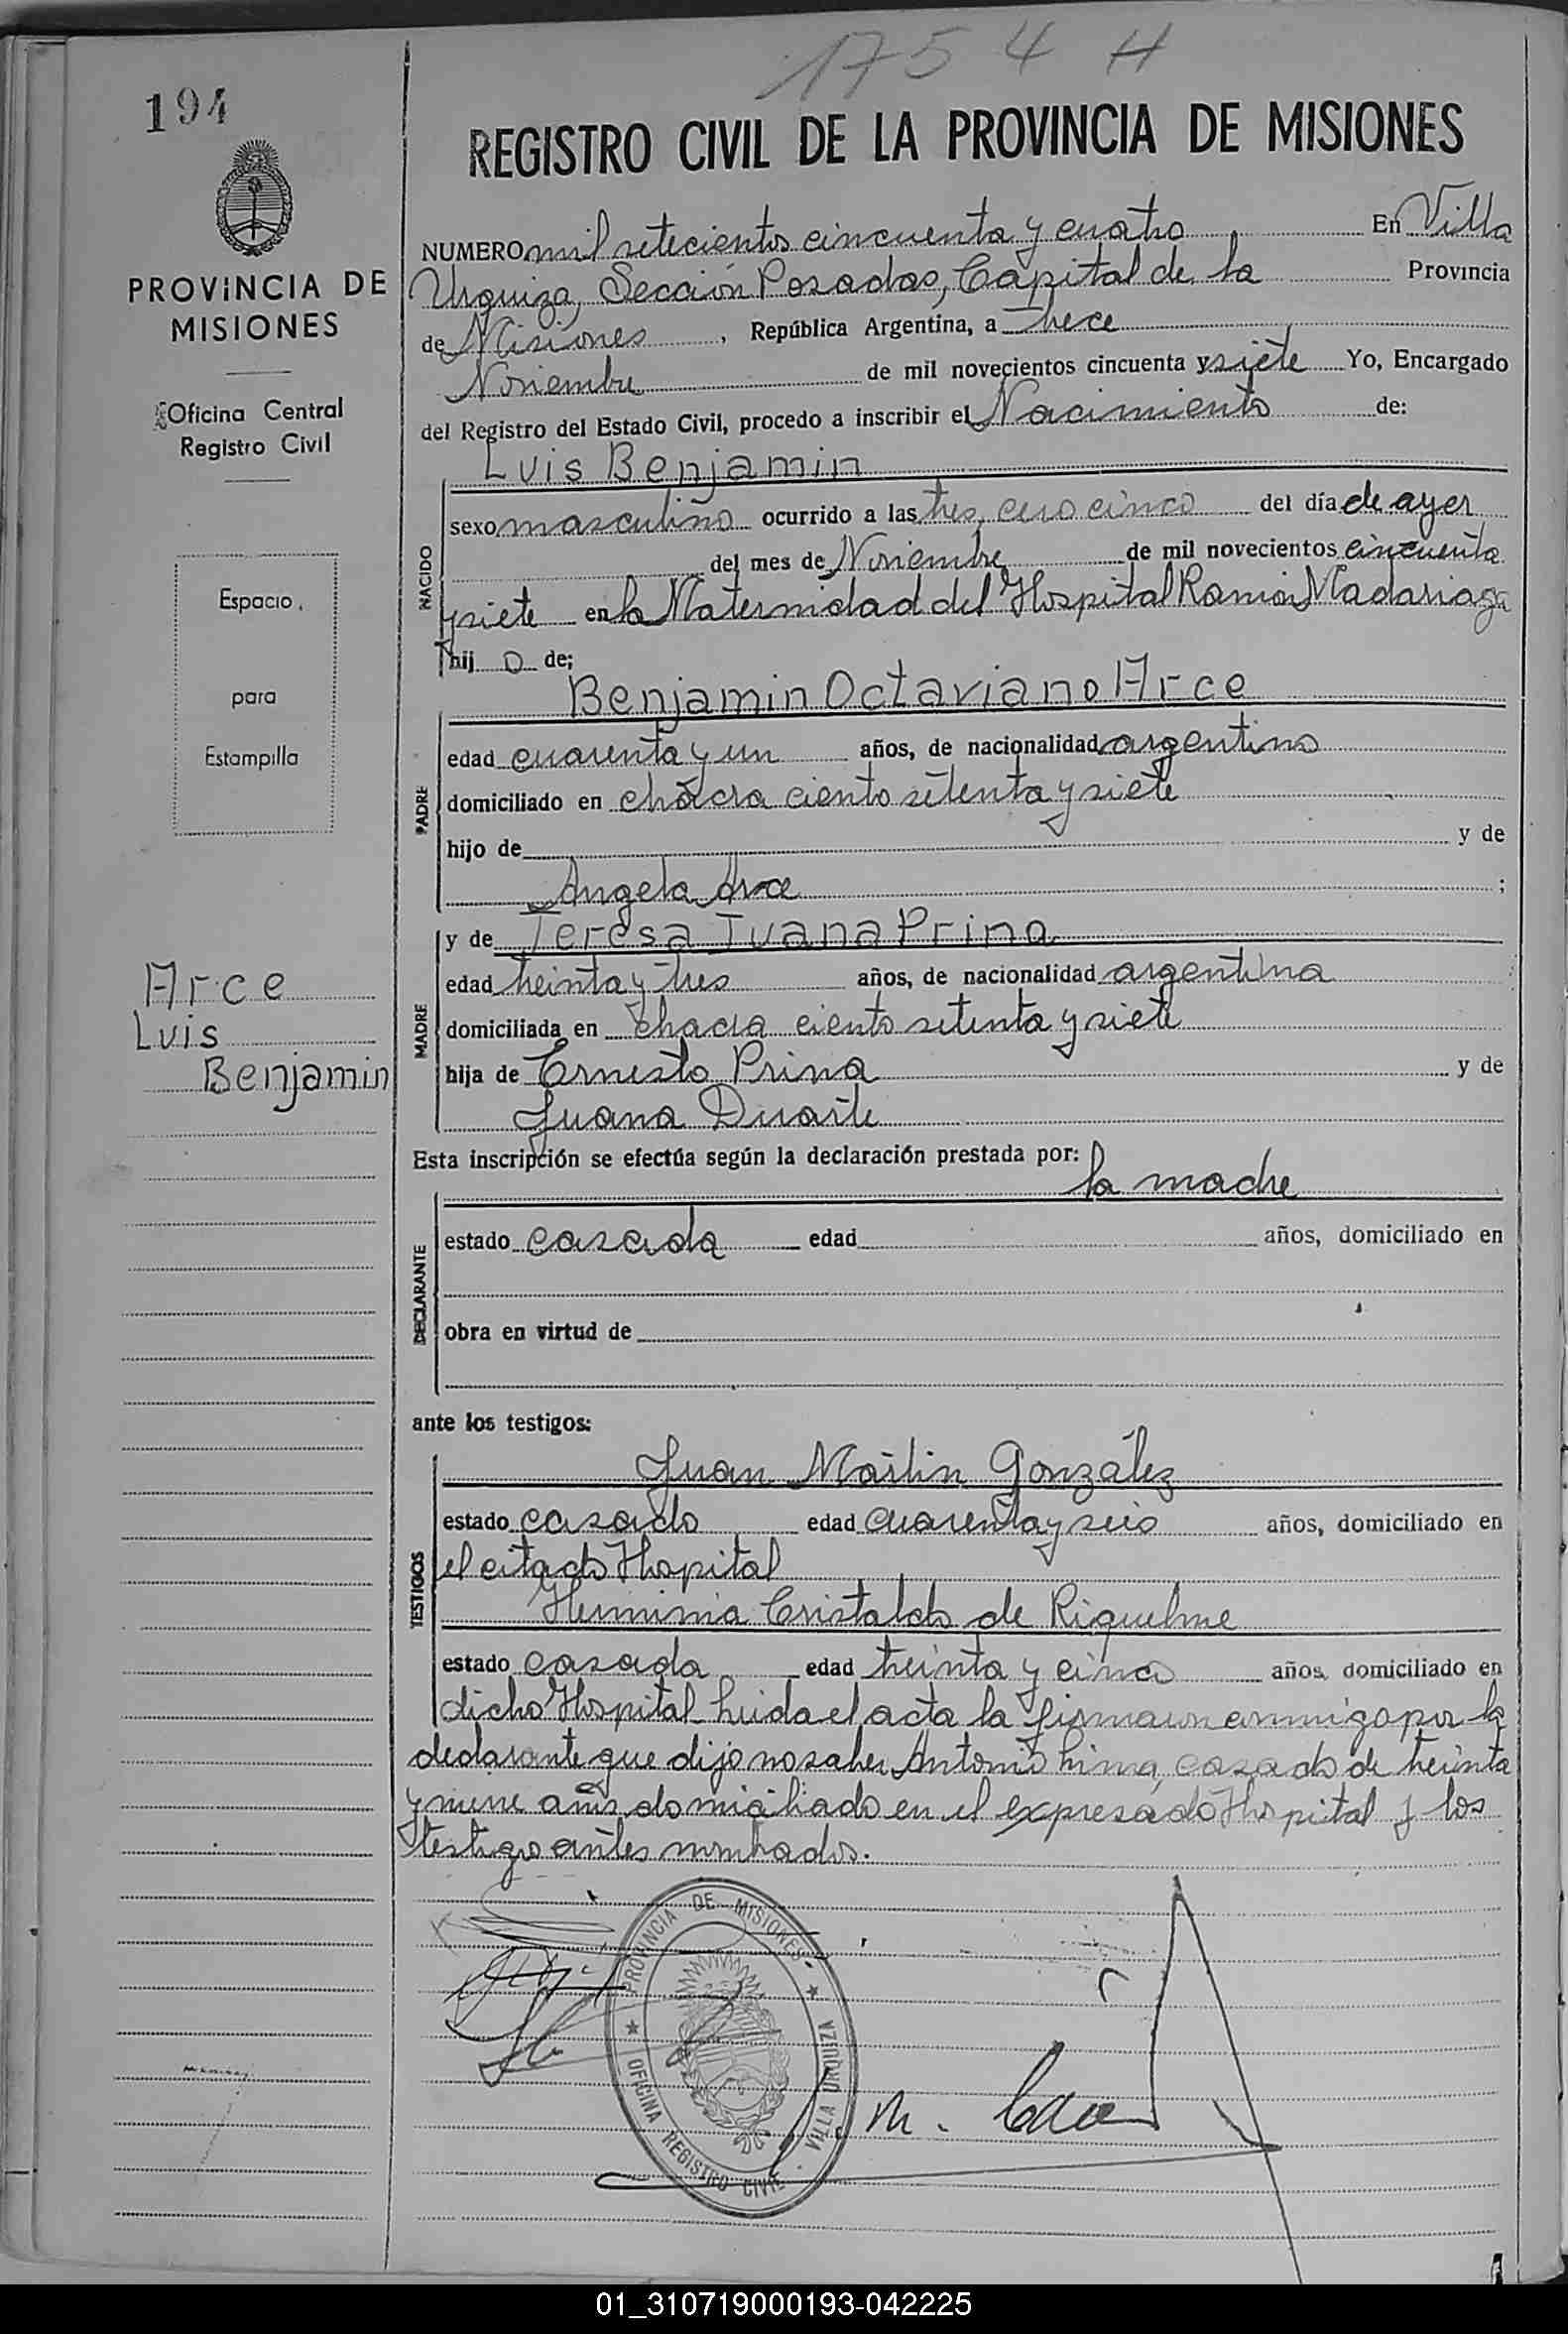 1754 H
194
REGISTRO CIVIL DE LA PROVINCIA DE MISIONES
PROVINCIA DE
MISIONES
Oficina Central
Registro Civil
Espacio
para
Estampilla
Arce
Luis
Benjamin
NUMERO mil setecientos cincuenta y cuatro En Villa
Urquiza, Sección Posadas, Capital de la Provincia
de Misiones, República Argentina, a trece
Noviembre de mil novecientos cincuenta y siete Yo, Encargado
del Registro del Estado Civil, procedo a inscribir el Nacimiento de:
Luis Benjamin
NACIDO
sexo masculino ocurrido a las tres, cero cinco del día de ayer
del mes de Noviembre de mil novecientos cincuenta
y siete en la Maternidad del Hospital Ramón Madariaga
hij o de;
Benjamin Octaviano Arce
PADRE
edad cuarenta y un años, de nacionalidad argentino
domiciliado en chacra ciento setenta y siete
hijo de y de
Angela Arce ;
MADRE
y de Teresa Juana Prina
edad treinta y tres años, de nacionalidad argentina
domiciliada en chacra ciento setenta y siete
hija de Ernesto Prina y de
Juana Duarte
Esta inscripción se efectúa según la declaración prestada por:
la madre
DECLARANTE
estado casada edad años, domiciliado en
obra en virtud de
ante los testigos:
Juan Martin González
TESTIGOS
estado casado edad cuarenta y seis años, domiciliado en
el citado Hospital
Herminia Cristaldo de Riquelme
estado casada edad treinta y cinco años, domiciliado en
dicho Hospital leida el acta la firmaron conmigo por la
declarante que dijo no saber Antonio casado de treinta
y nueve años, domiciliado en el expresado Hospital y los
testigos antes nombrados.
PROVINCIA DE MISIONES
OFICINA REGISTRO CIVIL
VILLA URQUIZA
01_310719000193-042225